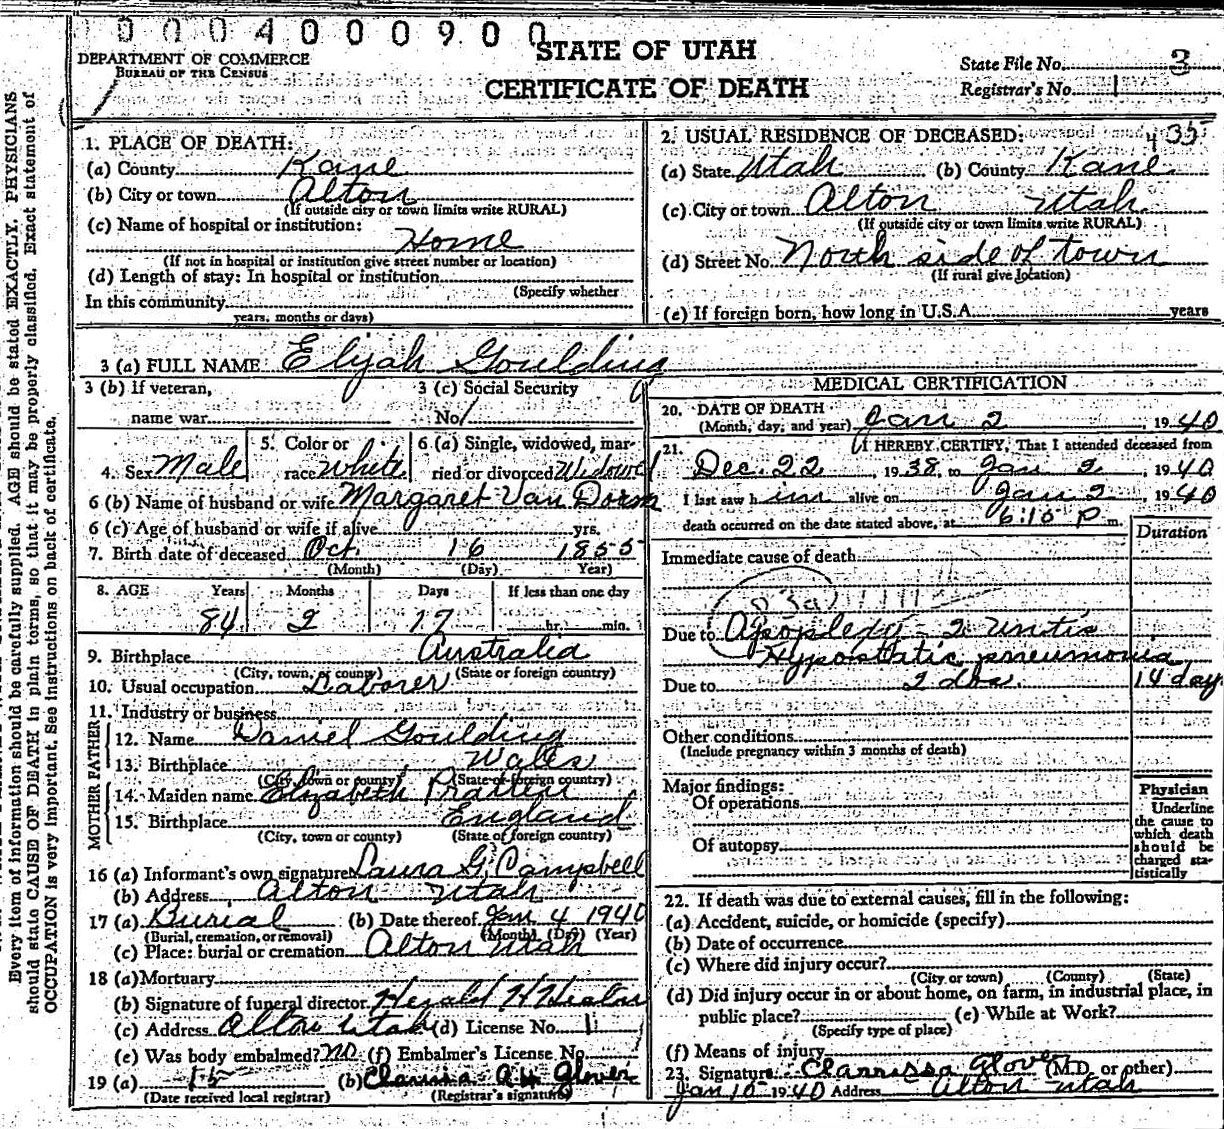 0004000900
STATE OF UTAH
CERTIFICATE OF DEATH
DEPARTMENT OF COMMERCE
BUREAU OF THE CENSUS
State File No. 3
Registrar's No. 1
Every item of information should be carefully supplied. AGE should be stated EXACTLY. PHYSICIANS
should state CAUSE OF DEATH in plain terms, so that it may be properly classified. Exact statement of
OCCUPATION is very important. See instructions on back of certificate.
1. PLACE OF DEATH:
(a) County Kane
(b) City or town Alton
(If outside city or town limits write RURAL)
(c) Name of hospital or institution:
Home
(If not in hospital or institution give street number or location)
(d) Length of stay: In hospital or institution
(Specify whether
In this community
years, months or days)
2. USUAL RESIDENCE OF DECEASED: 435
(a) State Utah (b) County Kane
(c) City or town Alton Utah
(If outside city or town limits write RURAL)
(d) Street No. North side of town
(If rural give location)
(e) If foreign born, how long in U.S.A. years
3 (a) FULL NAME Elijah Goulding
3 (b) If veteran, 3 (c) Social Security
name war No.
4. Sex Male 5. Color or race white 6 (a) Single, widowed, married or divorced Widowed
6 (b) Name of husband or wife Margaret Van Doren
6 (c) Age of husband or wife if alive yrs.
7. Birth date of deceased Oct. 16 1855
(Month) (Day) Year)
8. AGE Years Months Days If less than one day
84 2 17 hr. min.
9. Birthplace Australia
(City, town, or county) (State or foreign country)
10. Usual occupation Laborer
11. Industry or business
FATHER
12. Name Daniel Goulding
13. Birthplace Wales
(City, town or county) (State or foreign country)
MOTHER
14. Maiden name Elizabeth
15. Birthplace England
(City, town or county) (State or foreign country)
16 (a) Informant's own signature Laura G. Campbell
(b) Address Alton Utah
17 (a) Burial (b) Date thereof Jan 4 1940
(Burial, cremation, or removal) (Month) (Day) (Year)
(c) Place: burial or cremation Alton Utah
18 (a) Mortuary
(b) Signature of funeral director Herald H Heaton
(c) Address Alton Utah (d) License No. 1
(e) Was body embalmed? no (f) Embalmer's License No.
19 (a) 1-5 (b) Clarissa A. H. Glover
(Date received local registrar) (Registrar's signature)
MEDICAL CERTIFICATION
20. DATE OF DEATH
(Month, day, and year) Jan 2, 1940
21. I HEREBY CERTIFY, That I attended deceased from
Dec. 22, 1938, to Jan 2, 1940
I last saw him alive on Jan 2, 1940
death occurred on the date stated above, at 6:15 P m.
Duration
Immediate cause of death
83a
Due to Apoplexy
Hypostatic pneumonia
Due to 14 day
Other conditions
(Include pregnancy within 3 months of death)
Major findings:
Of operations
Of autopsy
Physician
Underline
the cause to
which death
should be
charged sta-
tistically
22. If death was due to external causes, fill in the following:
(a) Accident, suicide, or homicide (specify)
(b) Date of occurrence
(c) Where did injury occur?
(City or town) (County) (State)
(d) Did injury occur in or about home, on farm, in industrial place, in
public place? (e) While at Work?
(Specify type of place)
(f) Means of injury
23. Signature Clarrissa Glover (M.D. or other)
Jan 10 1940 Address Alton Utah